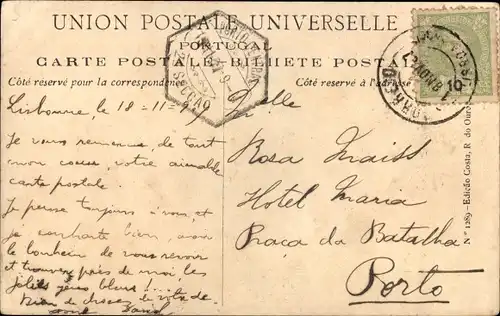 UNION POSTALE UNIVERSELLE
PORTUGAL
CARTE POSTALE - BILHETE POSTAL
Côté réservé pour la correspondence
Côté réservé à l'adresse
Lisbonne, 18-11-
Je vous remercie de tout
mon coeur, votre aimable
carte postale.
Je pense toujours à vous, et
je souhaite bien, avoir
le bonheur de vous revoir
et trouver près de moi, les
jolis yeux bleus!...
Rien de choses de votre
Melle
Rosa
Hotel Maria
Praça da Batalha
Porto
10
Nº 1289 - Edição Costa, R. do Ouro